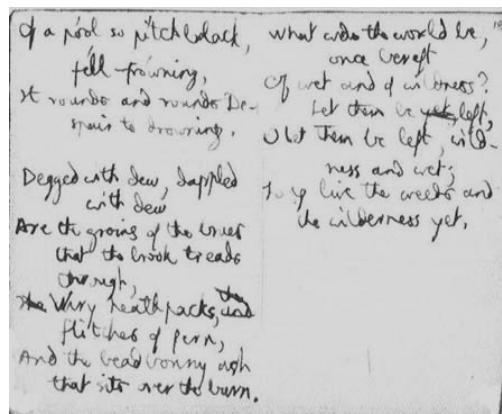 Of a pool so pitchblack,
féll-frówning,
It rounds and rounds De-
spair to drowning.
Degged with dew, dappled
with dew
Are the groins of the braes
that the brook treads
through,
Wiry heathpacks,
flitches of fern,
And the beadbonny ash
that sits over the burn.
What would the world be,
once bereft
Of wet and of wildness?
Let them be left,
O let them be left, wild-
ness and wet;
live the weeds and
the wilderness yet.